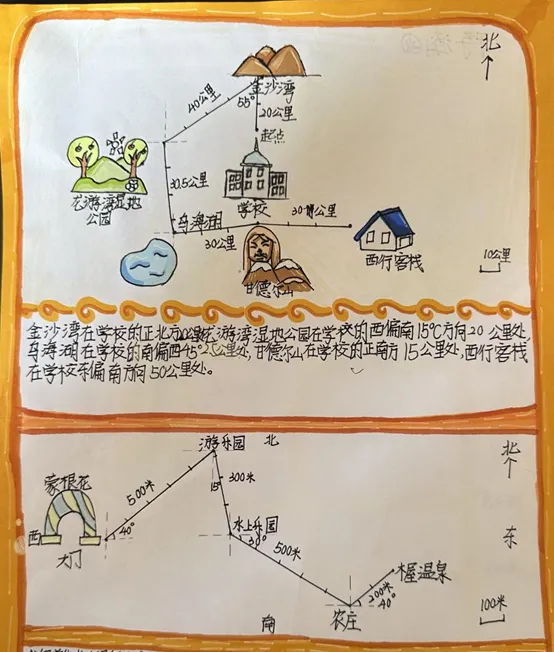 北
金沙湾
40公里
55°
20公里
起点
30.5公里
龙游湾湿地
公园
学校
乌海湖
30公里
西行客栈
甘德尔山
10公里
金沙湾在学校的正北方20公里处龙游湾湿地公园在学校的西偏南15°C方向20公里处,
乌海湖在学校的南偏西45°公里处,甘德尔山在学校的正南方15公里处,西行客栈
在学校东偏南方向50公里处。
游乐园
北
北
蒙根花
500米
15°
300米
西
40°
大门
水上乐园
30°
500米
东
木屋温泉
200米
40°
农庄
南
100米